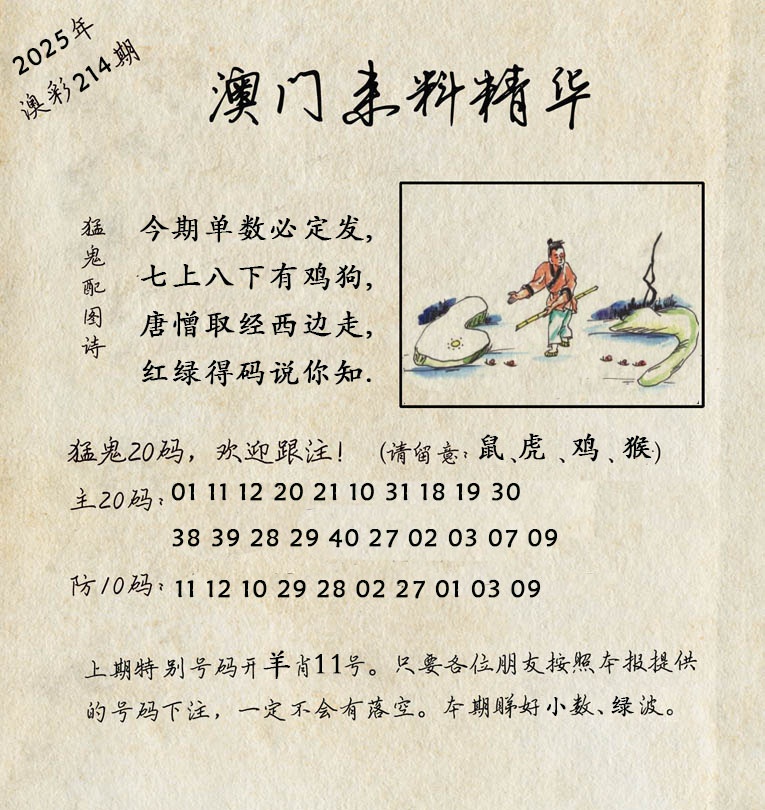 2025年
澳彩214期
澳门来料精华
猛鬼配图诗
今期单数必定发,
七上八下有鸡狗,
唐憎取经西边走,
红绿得码说你知.
猛鬼20码，欢迎跟注！（请留意：鼠、虎、鸡、猴）
主20码：01 11 12 20 21 10 31 18 19 30
38 39 28 29 40 27 02 03 07 09
防10码：11 12 10 29 28 02 27 01 03 09
上期特别号码开羊肖11号。只要各位朋友按照本报提供
的号码下注，一定不会有落空。本期睇好小数、绿波。